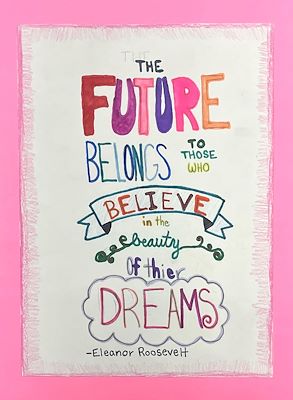 THE
FUTURE
BELONGS TO
THOSE
WHO
BELIEVE
in the
beauty
Of thier
DREAMS
-Eleanor Roosevelt